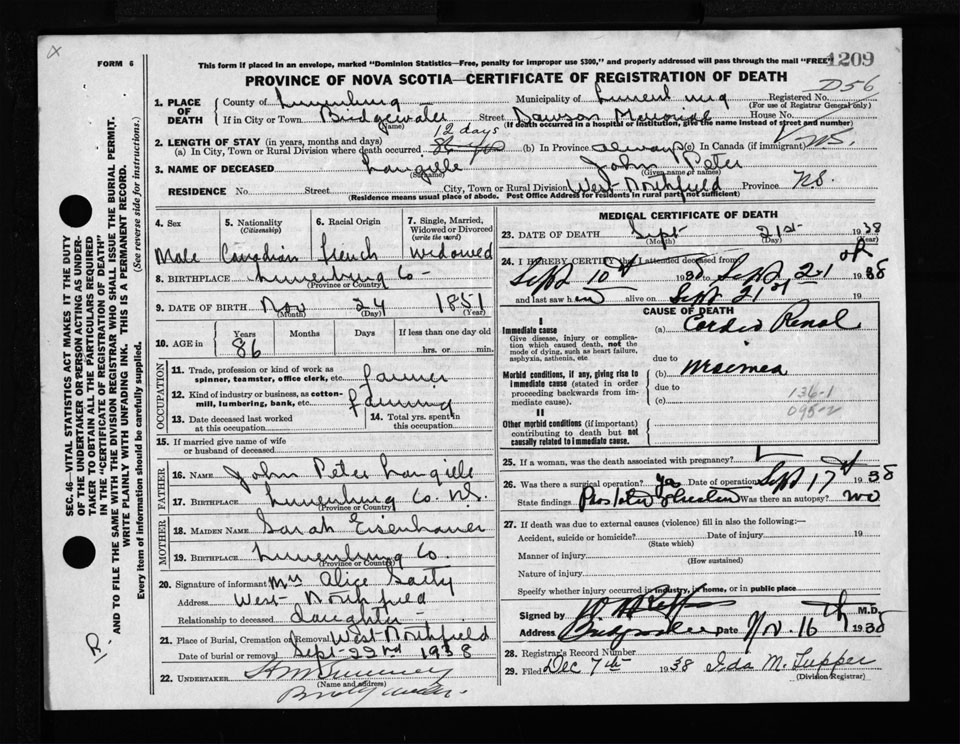 X
FORM 6
This form if placed in an envelope, marked "Dominion Statistics—Free, penalty for improper use $300," and properly addressed will pass through the mail "FREE"
1209
PROVINCE OF NOVA SCOTIA—CERTIFICATE OF REGISTRATION OF DEATH
D56
1. PLACE OF DEATH
County of Lunenburg Municipality of Lunenburg Registered No.
(For use of Registrar General only)
If in City or Town Bridgewater Street Dawson Memorial House No.
(Name) (If death occurred in a hospital or institution, give the name instead of street and number)
2. LENGTH OF STAY (in years, months and days)
12 days
(a) In City, Town or Rural Division where death occurred (b) In Province always (c) In Canada (if immigrant)
3. NAME OF DECEASED Langille John Peter
(Surname) (Given name or names)
RESIDENCE No. Street City, Town or Rural Division West Northfield Province N.S.
(Residence means usual place of abode. Post Office Address for residents in rural parts not sufficient)
SEC. 46—VITAL STATISTICS ACT MAKES IT THE DUTY OF THE UNDERTAKER OR PERSON ACTING AS UNDERTAKER TO OBTAIN ALL THE PARTICULARS REQUIRED IN THE "CERTIFICATE OF REGISTRATION OF DEATH" AND TO FILE THE SAME WITH THE DIVISION REGISTRAR WHO SHALL ISSUE THE BURIAL PERMIT.
WRITE PLAINLY WITH UNFADING INK. THIS IS A PERMANENT RECORD.
Every item of information should be carefully supplied. (See reverse side for instructions.)
R.
4. Sex 5. Nationality 6. Racial Origin 7. Single, Married, Widowed or Divorced
(Citizenship) (write the word)
Male Canadian French Widowed
8. BIRTHPLACE Lunenburg Co
(Province or Country)
9. DATE OF BIRTH Nov 24 1851
(Month) (Day) (Year)
10. AGE in Years Months Days If less than one day old
86 hrs. or min.
OCCUPATION
11. Trade, profession or kind of work as spinner, teamster, office clerk, etc. farmer
12. Kind of industry or business, as cotton-mill, lumbering, bank, etc. farming
13. Date deceased last worked at this occupation
14. Total yrs. spent in this occupation.
15. If married give name of wife or husband of deceased.
FATHER
16. NAME John Peter Langille
17. BIRTHPLACE Lunenburg Co. N.S.
(Province or Country)
MOTHER
18. MAIDEN NAME Sarah Eisenhauer
19. BIRTHPLACE Lunenburg Co.
(Province or Country)
20. Signature of informant Mrs Alice
Address West Northfield
Relationship to deceased daughter
21. Place of Burial, Cremation or Removal West Northfield
Date of burial or removal Sept 22nd 1938
22. UNDERTAKER
(Name and address)
Bridgewater
MEDICAL CERTIFICATE OF DEATH
23. DATE OF DEATH Sept 21st 1938
(Month) (Day) (Year)
24. I HEREBY CERTIFY that I attended deceased from
Sept 10th 1938 to Sept 21 1938
and last saw him alive on Sept 21st 19
CAUSE OF DEATH
I
Immediate cause
Give disease, injury or complication which caused death, not the mode of dying, such as heart failure, asphyxia, asthenia, etc
(a) Cardio Renal
due to
Morbid conditions, if any, giving rise to immediate cause (stated in order proceeding backwards from immediate cause).
(b) Uraemia
due to
(c)
136-1
095-2
II
Other morbid conditions (if important) contributing to death but not causally related to immediate cause.
25. If a woman, was the death associated with pregnancy?
26. Was there a surgical operation? yes Date of operation Sept 17th 1938
State findings Was there an autopsy? no
27. If death was due to external causes (violence) fill in also the following:—
Accident, suicide or homicide? Date of injury 19
(State which)
Manner of injury
(How sustained)
Nature of injury
Specify whether injury occurred in industry, in home, or in public place
Signed by M.D.
Address Bridgewater Date Nov. 16th 1938
28. Registrar's Record Number
29. Filed Dec 7th 1938 Ida M. Tupper
(Division Registrar)